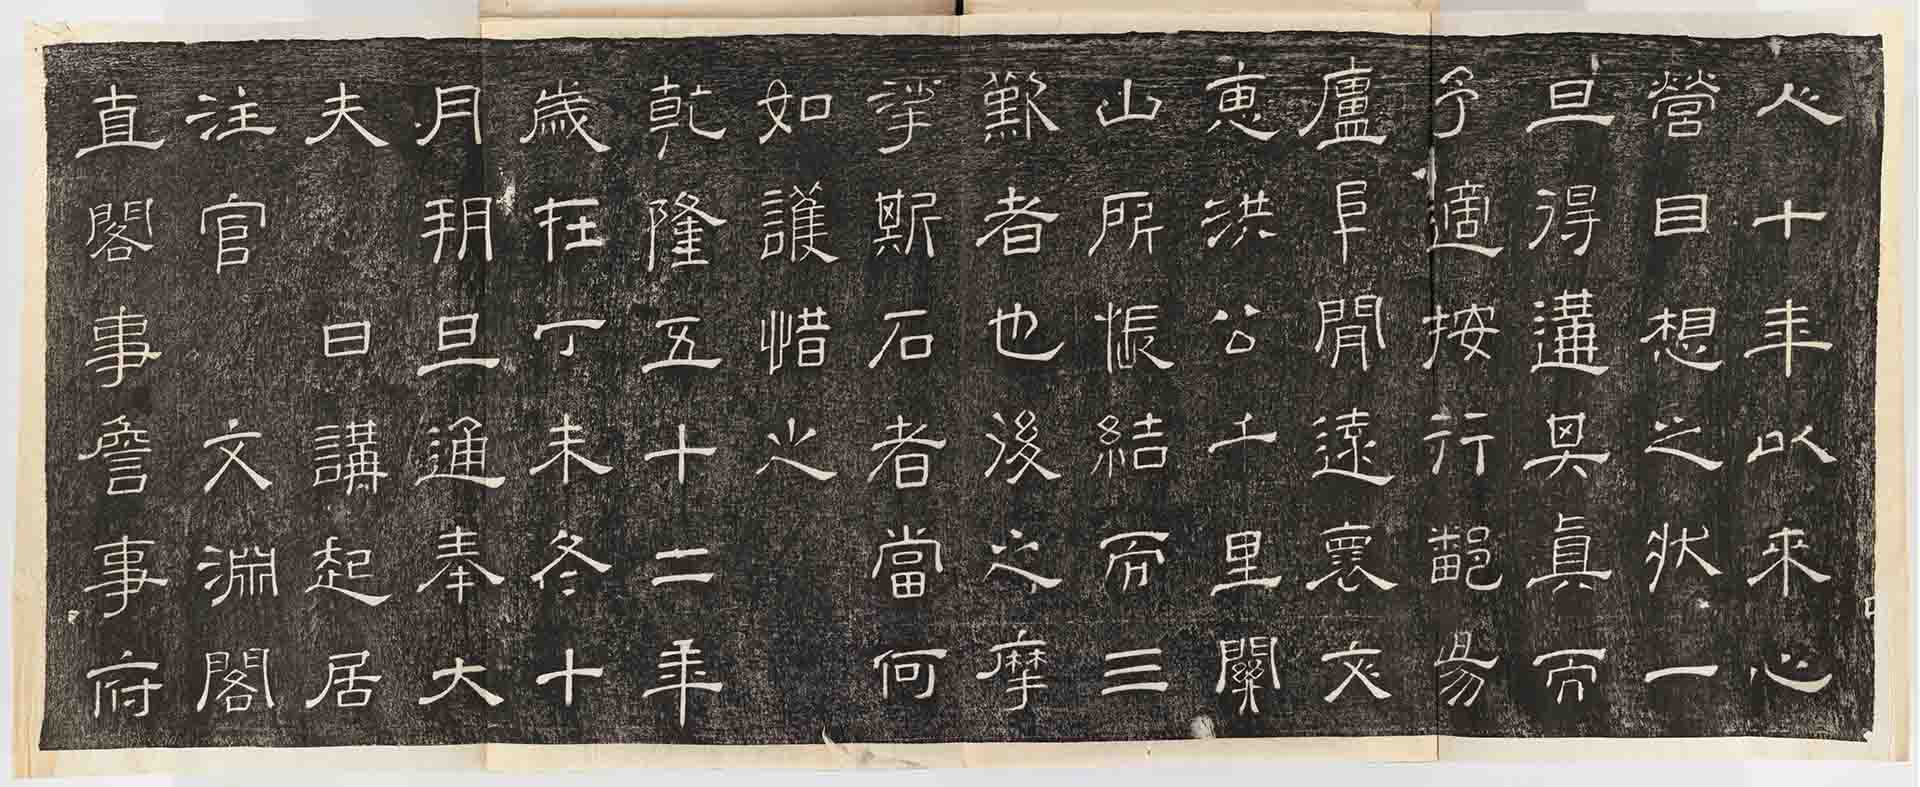 之十年以來心
營目想之狀一
旦得遘其眞而
予適按行鄱昜
廬阜閒遠褱文
惠洪公千里關
山所悵結而三
歎者也後之摩
挲斯石者當何
如護惜之
乾隆五十二年
歲在丁未冬十
月朔旦通奉大
夫 日講起居
注官 文淵閣
直閣事詹事府